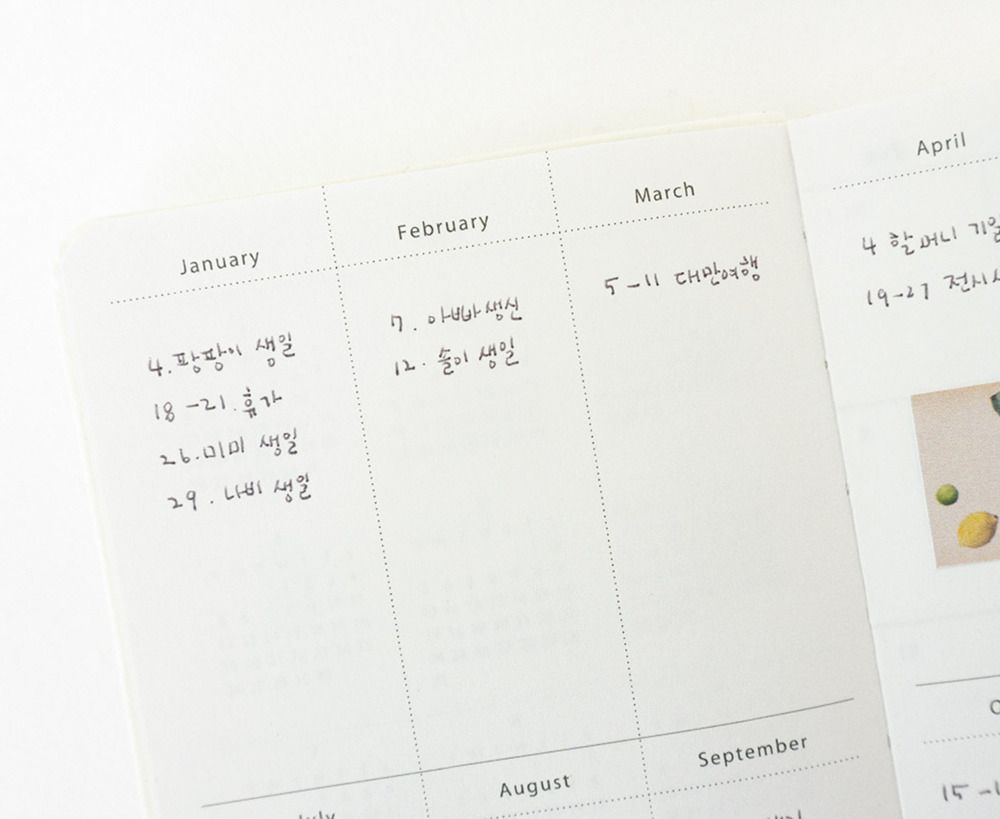 January
4. 팡팡이 생일
18 - 21. 휴가
26. 미미 생일
29. 나비 생일
February
7. 아빠생신
12. 솔이 생일
March
5 - 11 대만여행
April
4 할머니
19-27
August
September
15 -